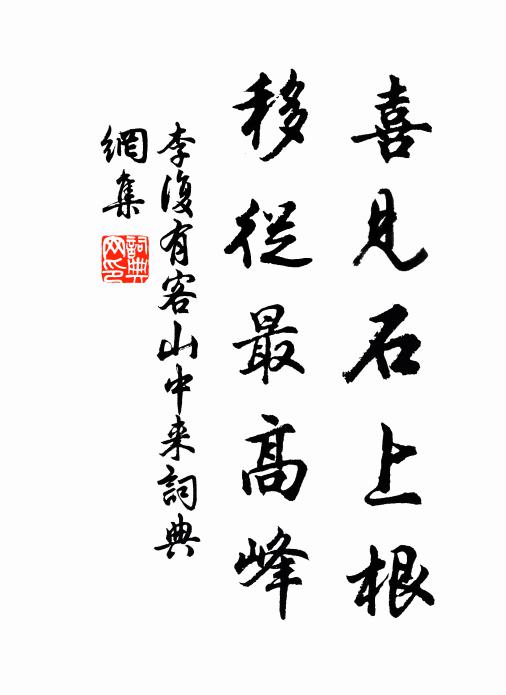 喜見石上根
移從最高峰
李復有客山中来詞典
網集
詞典
网印